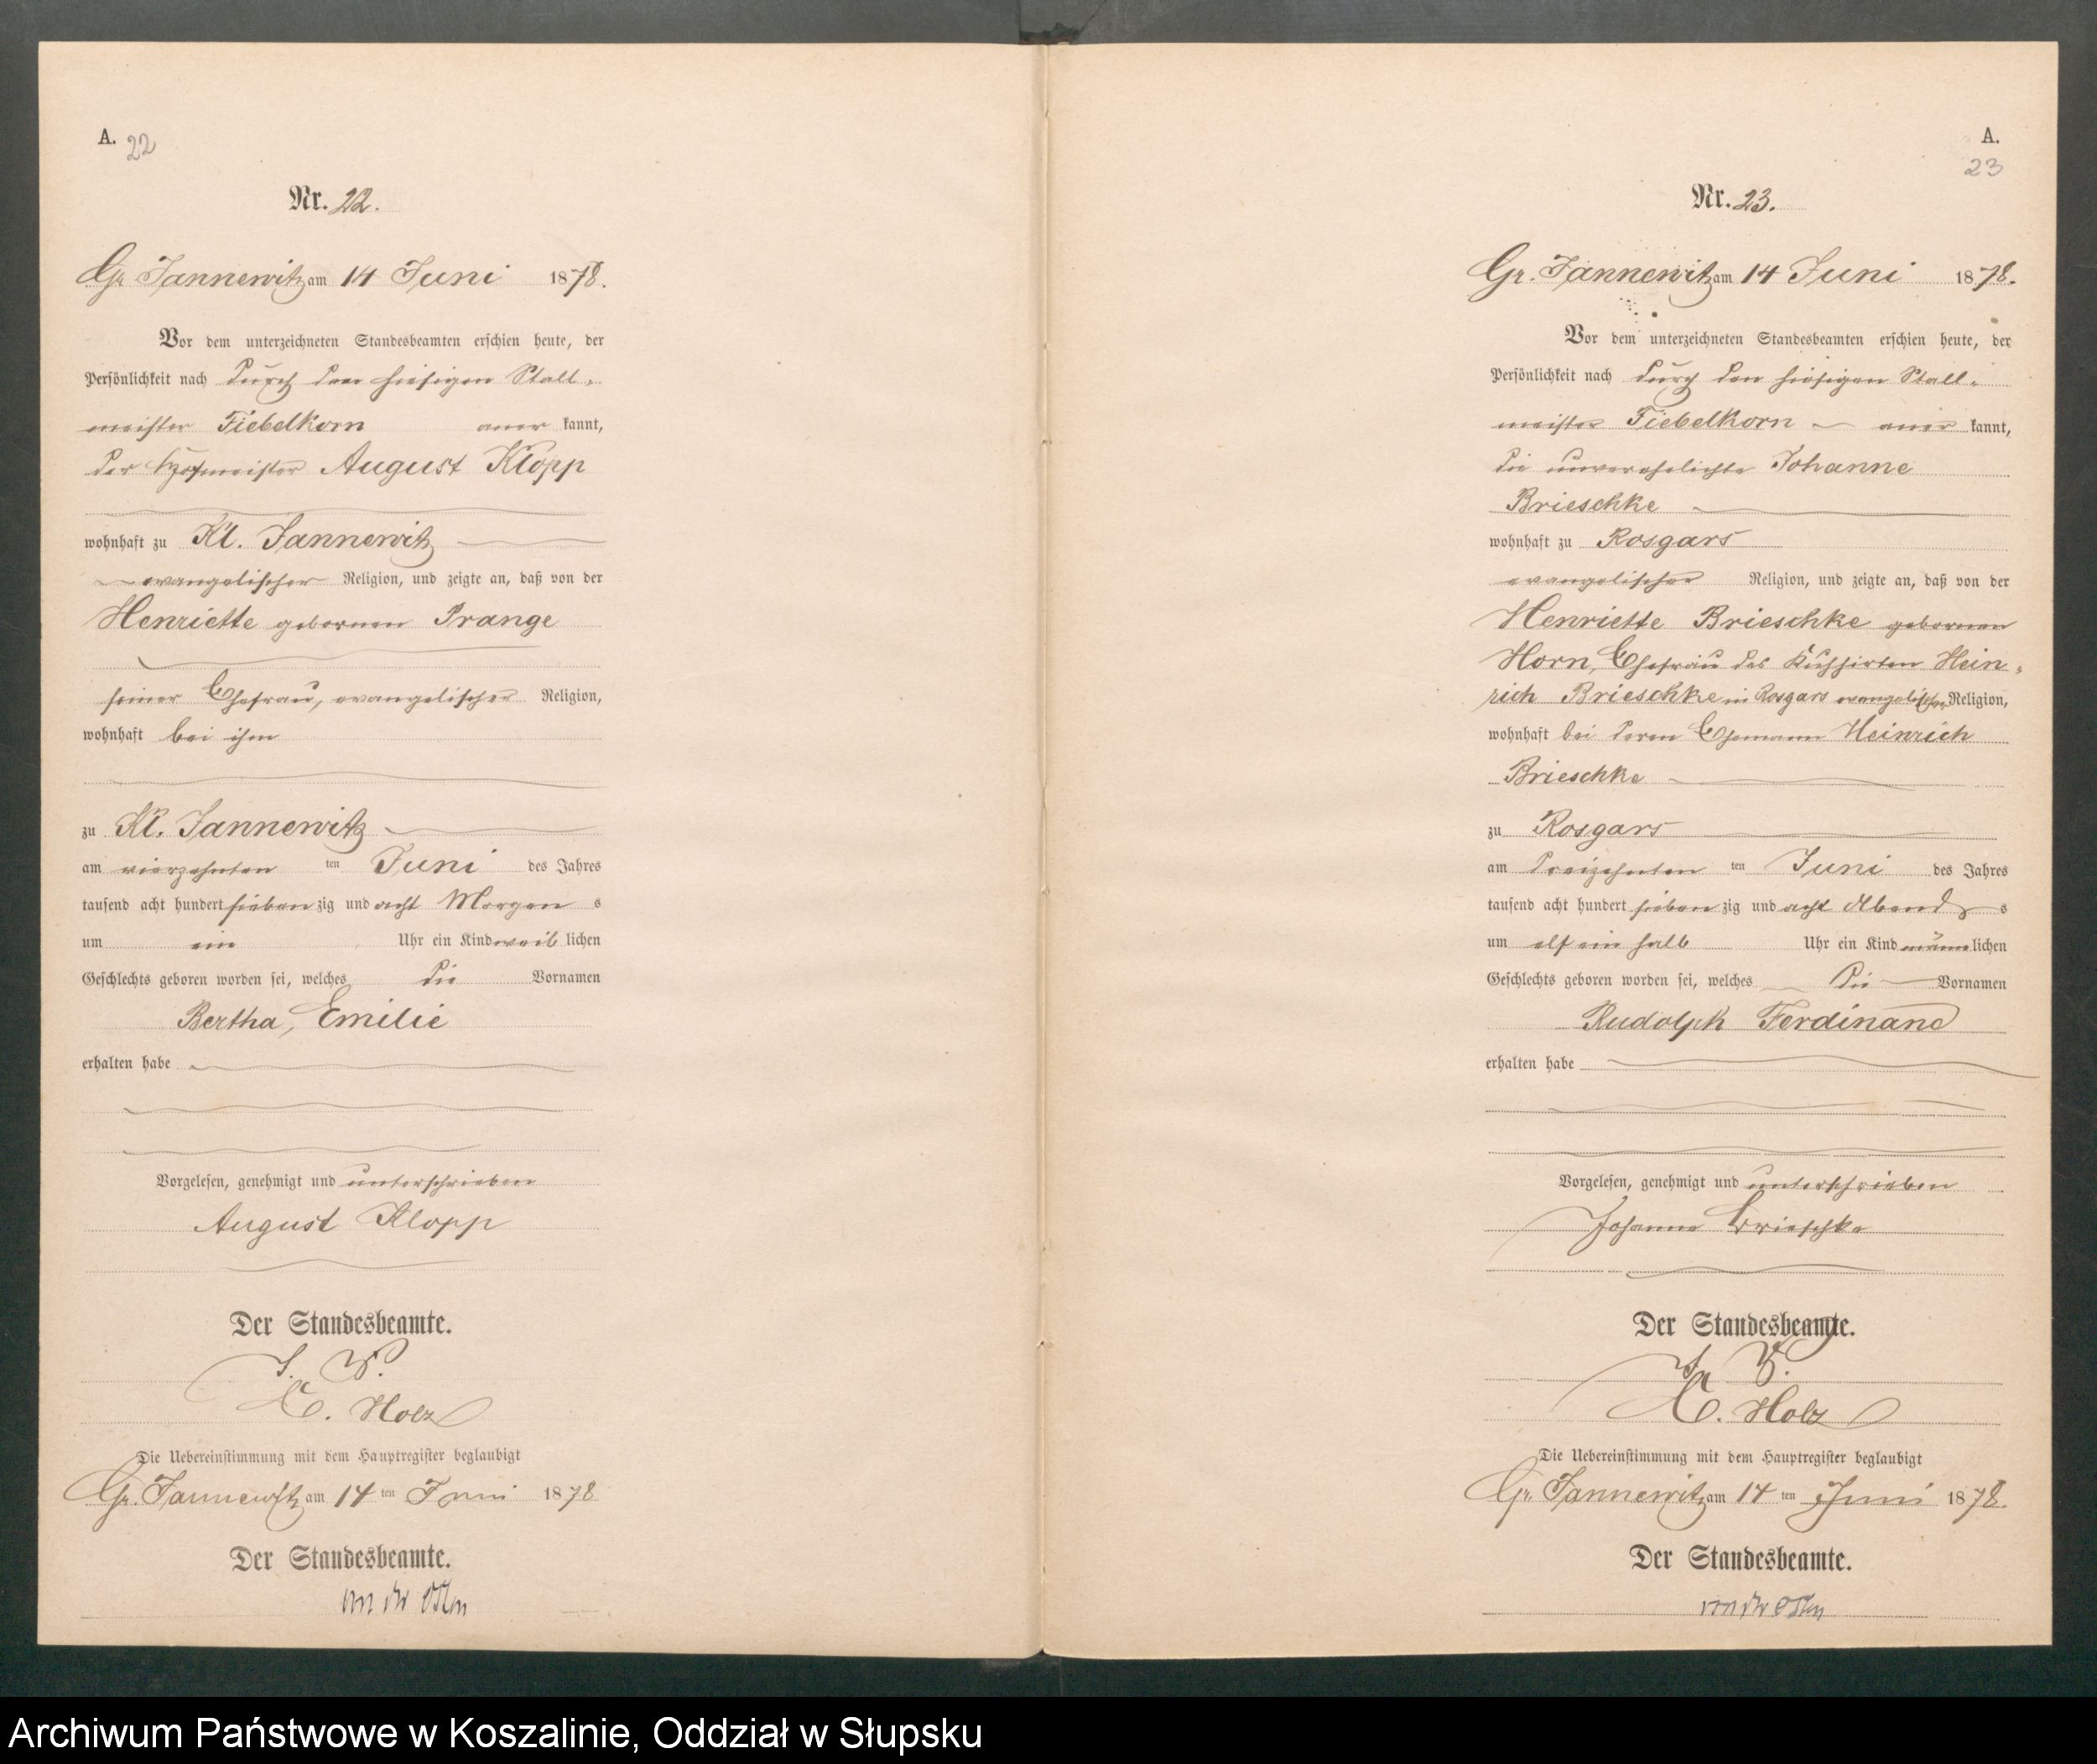 A. 22
Nr. 22.
Gr. Jannewitz am 14 Juni 1878.
Vor dem unterzeichneten Standesbeamten erschien heute, der
Persönlichkeit nach durch den hiesigen Stall-
meister Fiebelkorn aner kannt,
der Hofmeister August Klopp
wohnhaft zu Kl. Jannewitz
evangelischer Religion, und zeigte an, daß von der
Henriette gebornen Prange
seiner Ehefrau, evangelischer Religion,
wohnhaft bei ihm
zu Kl. Jannewitz
am vierzehnten ten Juni des Jahres
tausend acht hundert sieben zig und acht Morgen s
um ein Uhr ein Kind weib lichen
Geschlechts geboren worden sei, welches die Vornamen
Bertha, Emilie
erhalten habe
Vorgelesen, genehmigt und unterschrieben
August Klopp
Der Standesbeamte.
J. V.
C. Holz
Die Uebereinstimmung mit dem Hauptregister beglaubigt
Gr. Jannewitz am 14 ten Juni 1878
Der Standesbeamte.
von der Osten
A.
23
Nr. 23.
Gr. Jannewitz am 14 Juni 1878.
Vor dem unterzeichneten Standesbeamten erschien heute, der
Persönlichkeit nach durch den hiesigen Stall-
meister Fiebelkorn aner kannt,
die unverehelichte Johanne
Brieschke
wohnhaft zu Rosgars
evangelischer Religion, und zeigte an, daß von der
Henriette Brieschke gebornen
Horn, Ehefrau des Kuhhirten Hein-
rich Brieschke in Rosgars evangelischer Religion,
wohnhaft bei deren Ehemann Heinrich
Brieschke
zu Rosgars
am dreizehnten ten Juni des Jahres
tausend acht hundert sieben zig und acht Abend s
um elf ein halb Uhr ein Kind männ lichen
Geschlechts geboren worden sei, welches die Vornamen
Rudolph Ferdinand
erhalten habe
Vorgelesen, genehmigt und unterschrieben
Johanne Brieschke
Der Standesbeamte.
J. V.
C. Holz
Die Uebereinstimmung mit dem Hauptregister beglaubigt
Gr. Jannewitz am 14 ten Juni 1878.
Der Standesbeamte.
von der Osten
Archiwum Państwowe w Koszalinie, Oddział w Słupsku